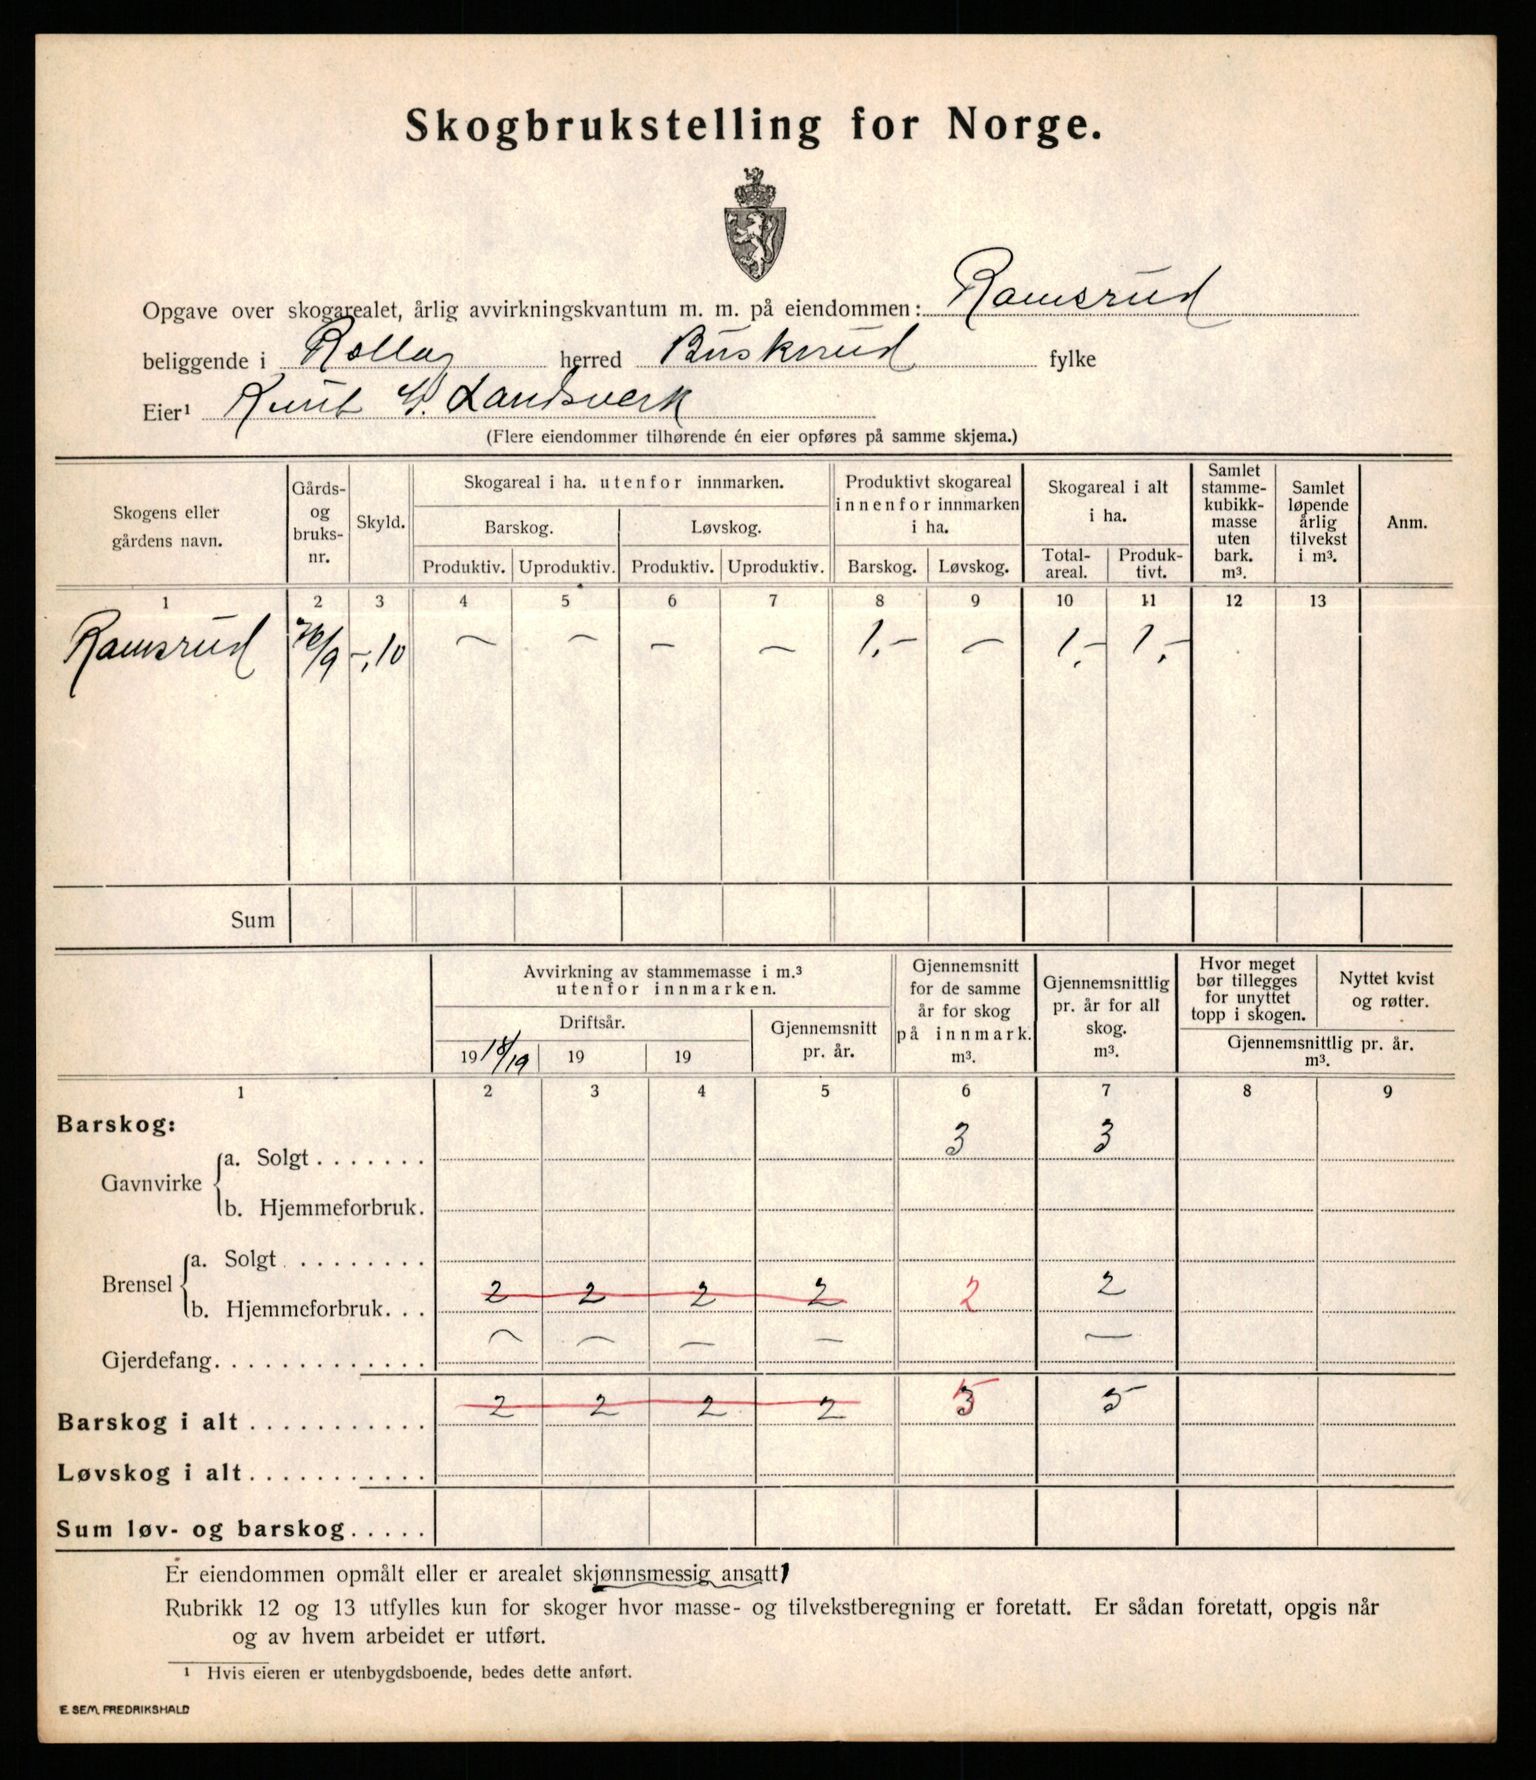 Skogbrukstelling for Norge.
Opgave over skogarealet, årlig avvirkningskvantum m. m. på eiendommen: Ramsrud
beliggende i Rollag herred Buskerud fylke
Eier¹ Knut G. Landsverk
(Flere eiendommer tilhørende én eier opføres på samme skjema.)
Skogens eller gårdens navn. Gårds- og bruks-nr. Skyld. Skogareal i ha. utenfor innmarken. Produktivt skogareal innenfor innmarken i ha. Skogareal i alt i ha. Samlet stamme-kubikk-masse uten bark. m³. Samlet løpende årlig tilvekst i m³. Anm.
Barskog. Løvskog.
Produktiv. Uproduktiv. Produktiv. Uproduktiv. Barskog. Løvskog. Total-areal. Produk-tivt.
1 2 3 4 5 6 7 8 9 10 11 12 13
Ramsrud 76/9 -,10 — — — — 1,- — 1,- 1,-
Sum
Avvirkning av stammemasse i m.³ utenfor innmarken. Gjennemsnitt for de samme år for skog på innmark. m³. Gjennemsnittlig pr. år for all skog. m³. Hvor meget bør tillegges for unyttet topp i skogen. Nyttet kvist og røtter.
Driftsår. Gjennemsnitt pr. år. Gjennemsnittlig pr. år. m³.
19 18/19 19 19
1 2 3 4 5 6 7 8 9
Barskog: 3 3
Gavnvirke a. Solgt .......
b. Hjemmeforbruk.
Brensel a. Solgt ........
b. Hjemmeforbruk... 2 2 2 2 2 2
Gjerdefang.............. — — — — —
Barskog i alt ........... 2 2 2 2 5 5
Løvskog i alt ...........
Sum løv- og barskog.....
Er eiendommen opmålt eller er arealet skjønnsmessig ansatt?
Rubrikk 12 og 13 utfylles kun for skoger hvor masse- og tilvekstberegning er foretatt. Er sådan foretatt, opgis når
og av hvem arbeidet er utført.
¹ Hvis eieren er utenbygdsboende, bedes dette anført.
E. SEM, FREDRIKSHALD